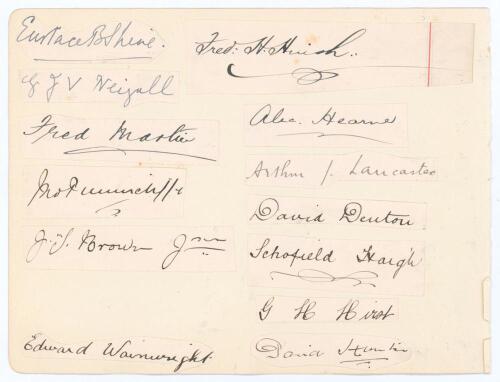 Eustace B Shine.
G J V Weigall
Fred Martin
Jno Tunnicliffe
J. T. Brown Jnr
Edward Wainwright.
Fred: H. Huish.
Alec. Hearne
Arthur J. Lancaster
David Denton
Schofield Haigh
G H Hirst
David Hunter